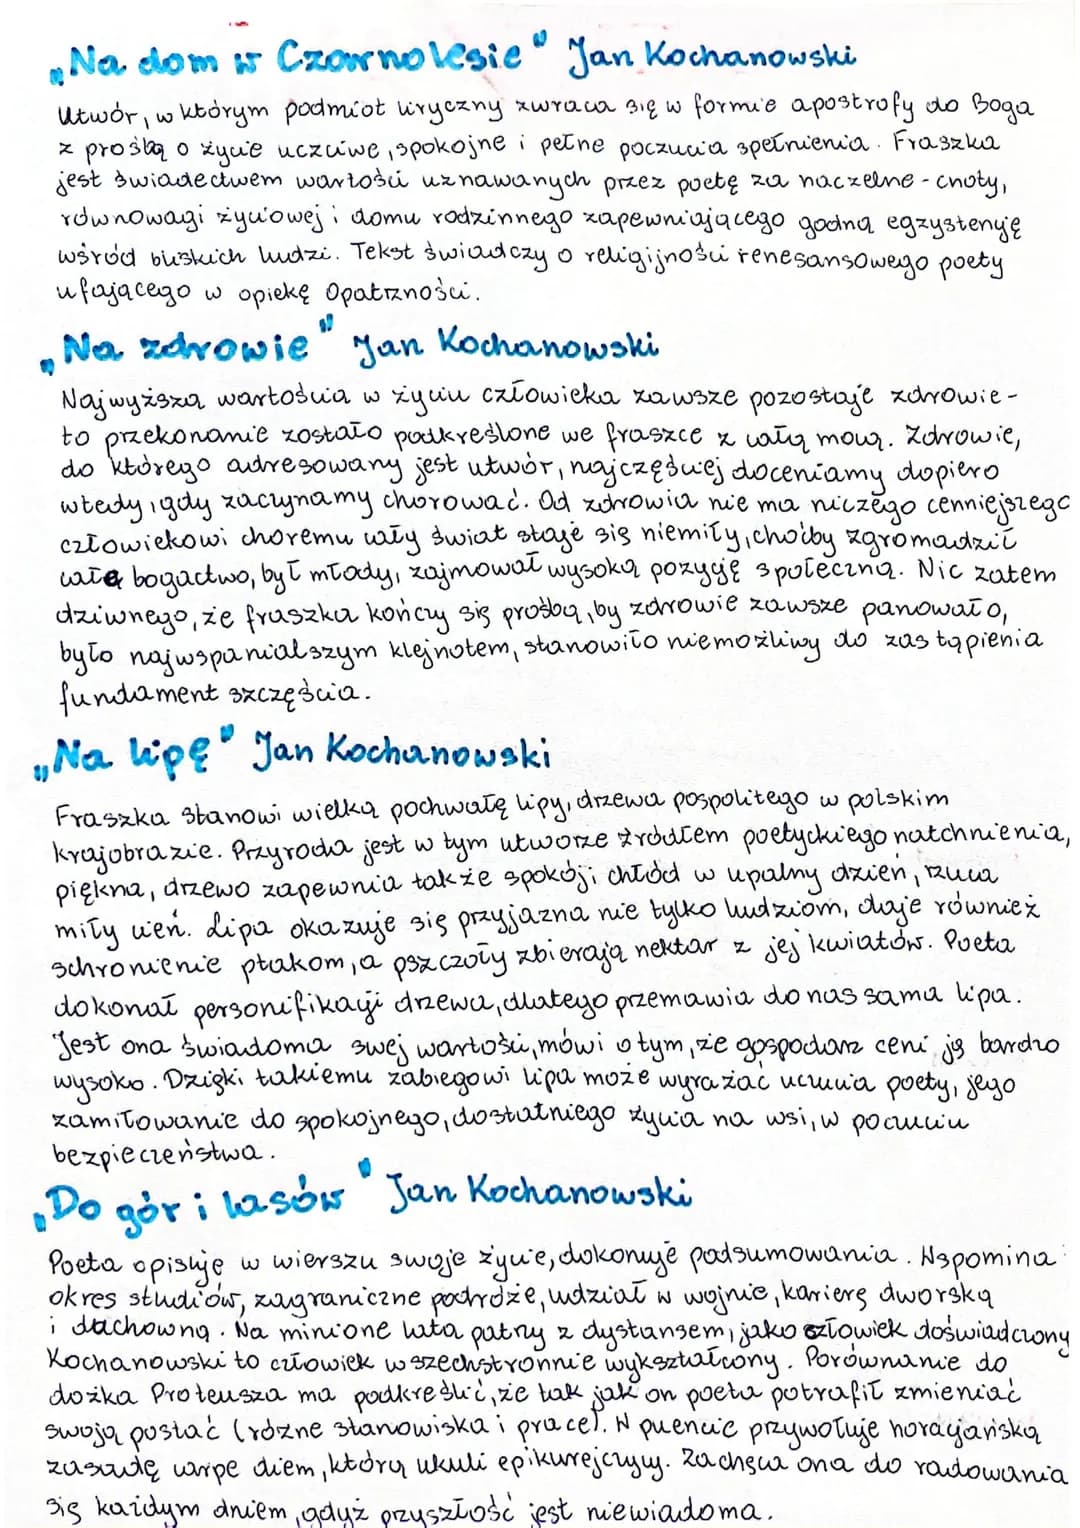 „Na dom w Czarnolesie" Jan Kochanowski
Utwór, w którym podmiot liryczny zwraca się w formie apostrofy do Boga
z prośbą o życie uczciwe, spokojne i pełne poczucia spełnienia. Fraszka
jest świadectwem wartości uznawanych przez poetę za naczelne - cnoty,
równowagi życiowej i domu rodzinnego zapewniającego godną egzystencję
wśród bliskich ludzi. Tekst świadczy o religijności renesansowego poety
ufającego w opiekę Opatrzności.
„Na zdrowie" Jan Kochanowski
Najwyższą wartością w życiu człowieka zawsze pozostaje zdrowie -
to przekonanie zostało podkreślone we fraszce z całą mocą. Zdrowie,
do którego adresowany jest utwór, najczęściej doceniamy dopiero
wtedy, gdy zaczynamy chorować. Od zdrowia nie ma niczego cenniejszego
człowiekowi choremu cały świat staje się niemiły, choćby zgromadził
całe bogactwo, był młody, zajmował wysoką pozycję społeczną. Nic zatem
dziwnego, że fraszka kończy się prośbą, by zdrowie zawsze panowało,
było najwspanialszym klejnotem, stanowiło niemożliwy do zastąpienia
fundament szczęścia.
„Na lipę" Jan Kochanowski
Fraszka stanowi wielką pochwałę lipy, drzewa pospolitego w polskim
krajobrazie. Przyroda jest w tym utworze źródłem poetyckiego natchnienia,
piękna, drzewo zapewnia także spokój i chłód w upalny dzień, rzuca
miły cień. Lipa okazuje się przyjazna nie tylko ludziom, daje również
schronienie ptakom, a pszczoły zbierają nektar z jej kwiatów. Poeta
dokonał personifikacji drzewa, dlatego przemawia do nas sama lipa.
Jest ona świadoma swej wartości, mówi o tym, że gospodarz ceni ją bardzo
wysoko. Dzięki takiemu zabiegowi lipa może wyrażać uczucia poety, jego
zamiłowanie do spokojnego, dostatniego życia na wsi, w poczuciu
bezpieczeństwa.
„Do gór i lasów" Jan Kochanowski
Poeta opisuję w wierszu swoje życie, dokonuje podsumowania. Wspomina
okres studiów, zagraniczne podróże, udział w wojnie, karierę dworską
i duchowną. Na minione lata patrzy z dystansem, jako człowiek doświadczony
Kochanowski to człowiek wszechstronnie wykształcony. Porównanie do
bożka Proteusza ma podkreślić, że tak jak on poeta potrafił zmieniać
swoją postać (różne stanowiska i prace). W puencie przywołuje horacjańską
zasadę carpe diem, którą ukuli epikurejczycy. Zachęca ona do radowania
się każdym dniem, gdyż przyszłość jest niewiadoma.